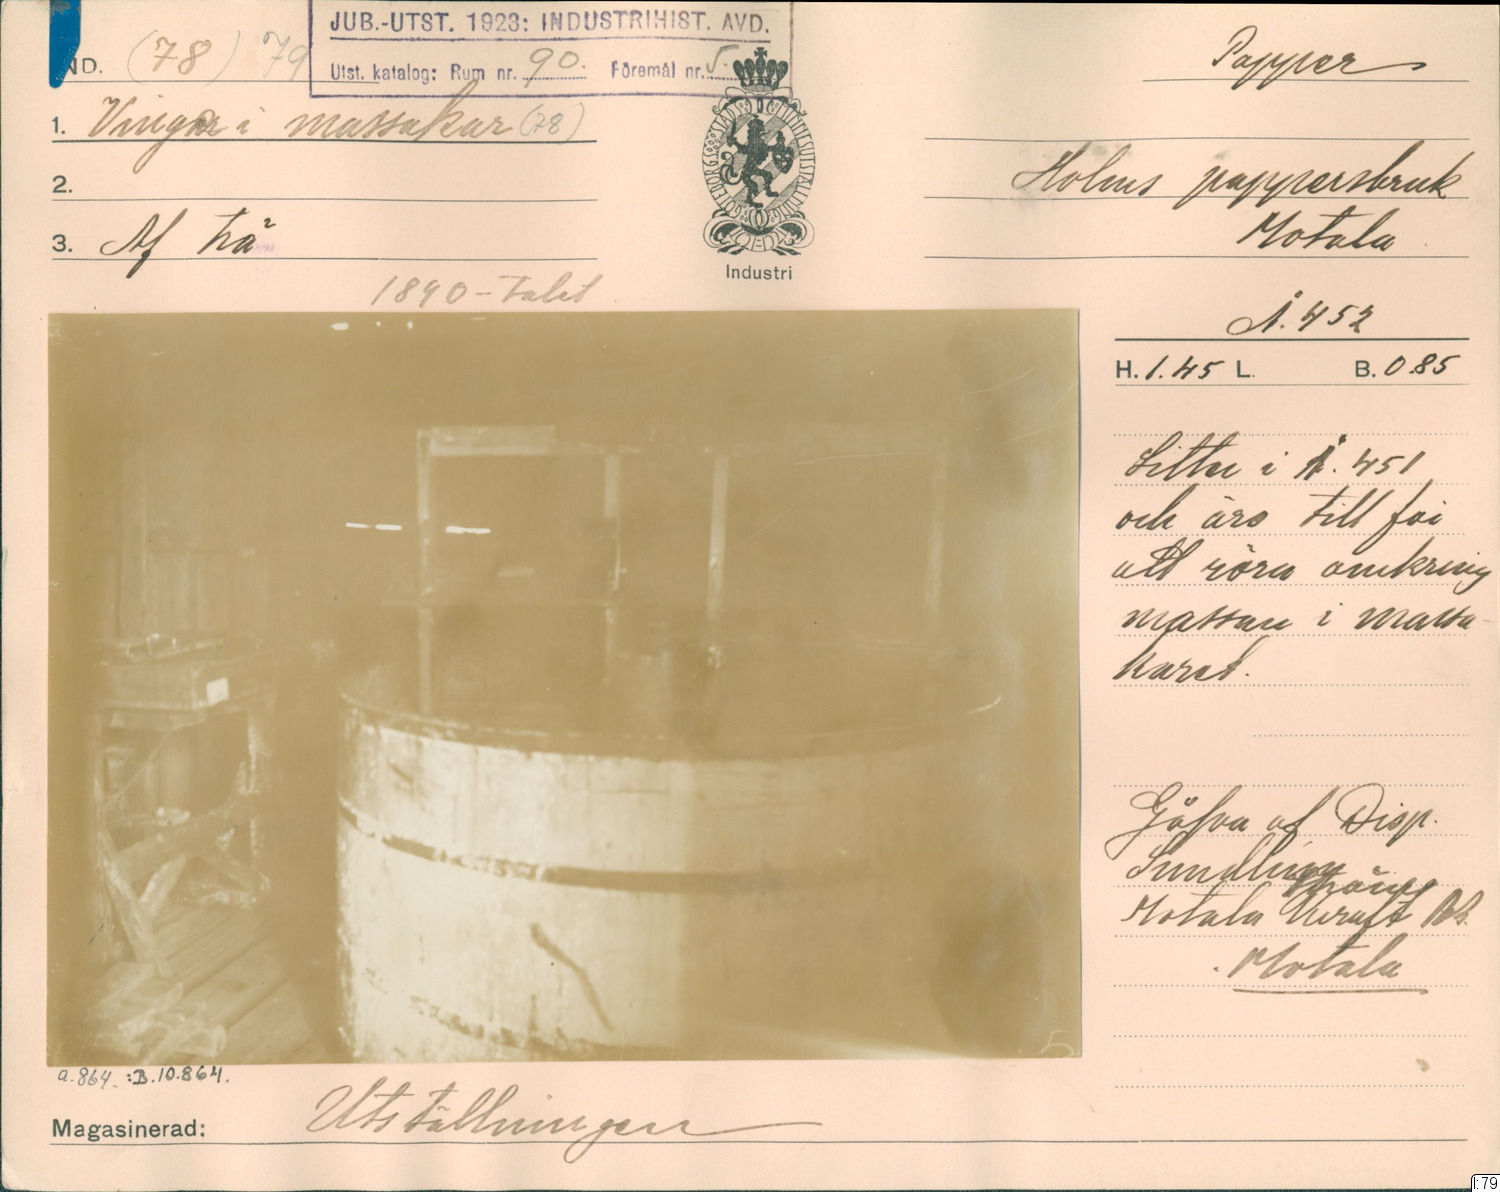 JUB.-UTST. 1923: INDUSTRIHIST. AVD.
Utst. katalog: Rum nr. 90. Föremål nr. 5.
IND. (78) 79
1. Vingar i massakar (78)
2.
3. Af trä
1890-talet
GÖTEBORGS STADS MINNESUTSTÄLLNING
Industri
Papper
Holms pappersbruk
Motala
Å. 452
H. 1.45 L. B. 0.85
Sitter i Å. 451
och äro till för
att röra omkring
massan i massa-
karet.
Gåfva af Disp.
Sundling
Motala
Motala
5
a.864. :B.10.864.
Magasinerad: Utställningen
I:79